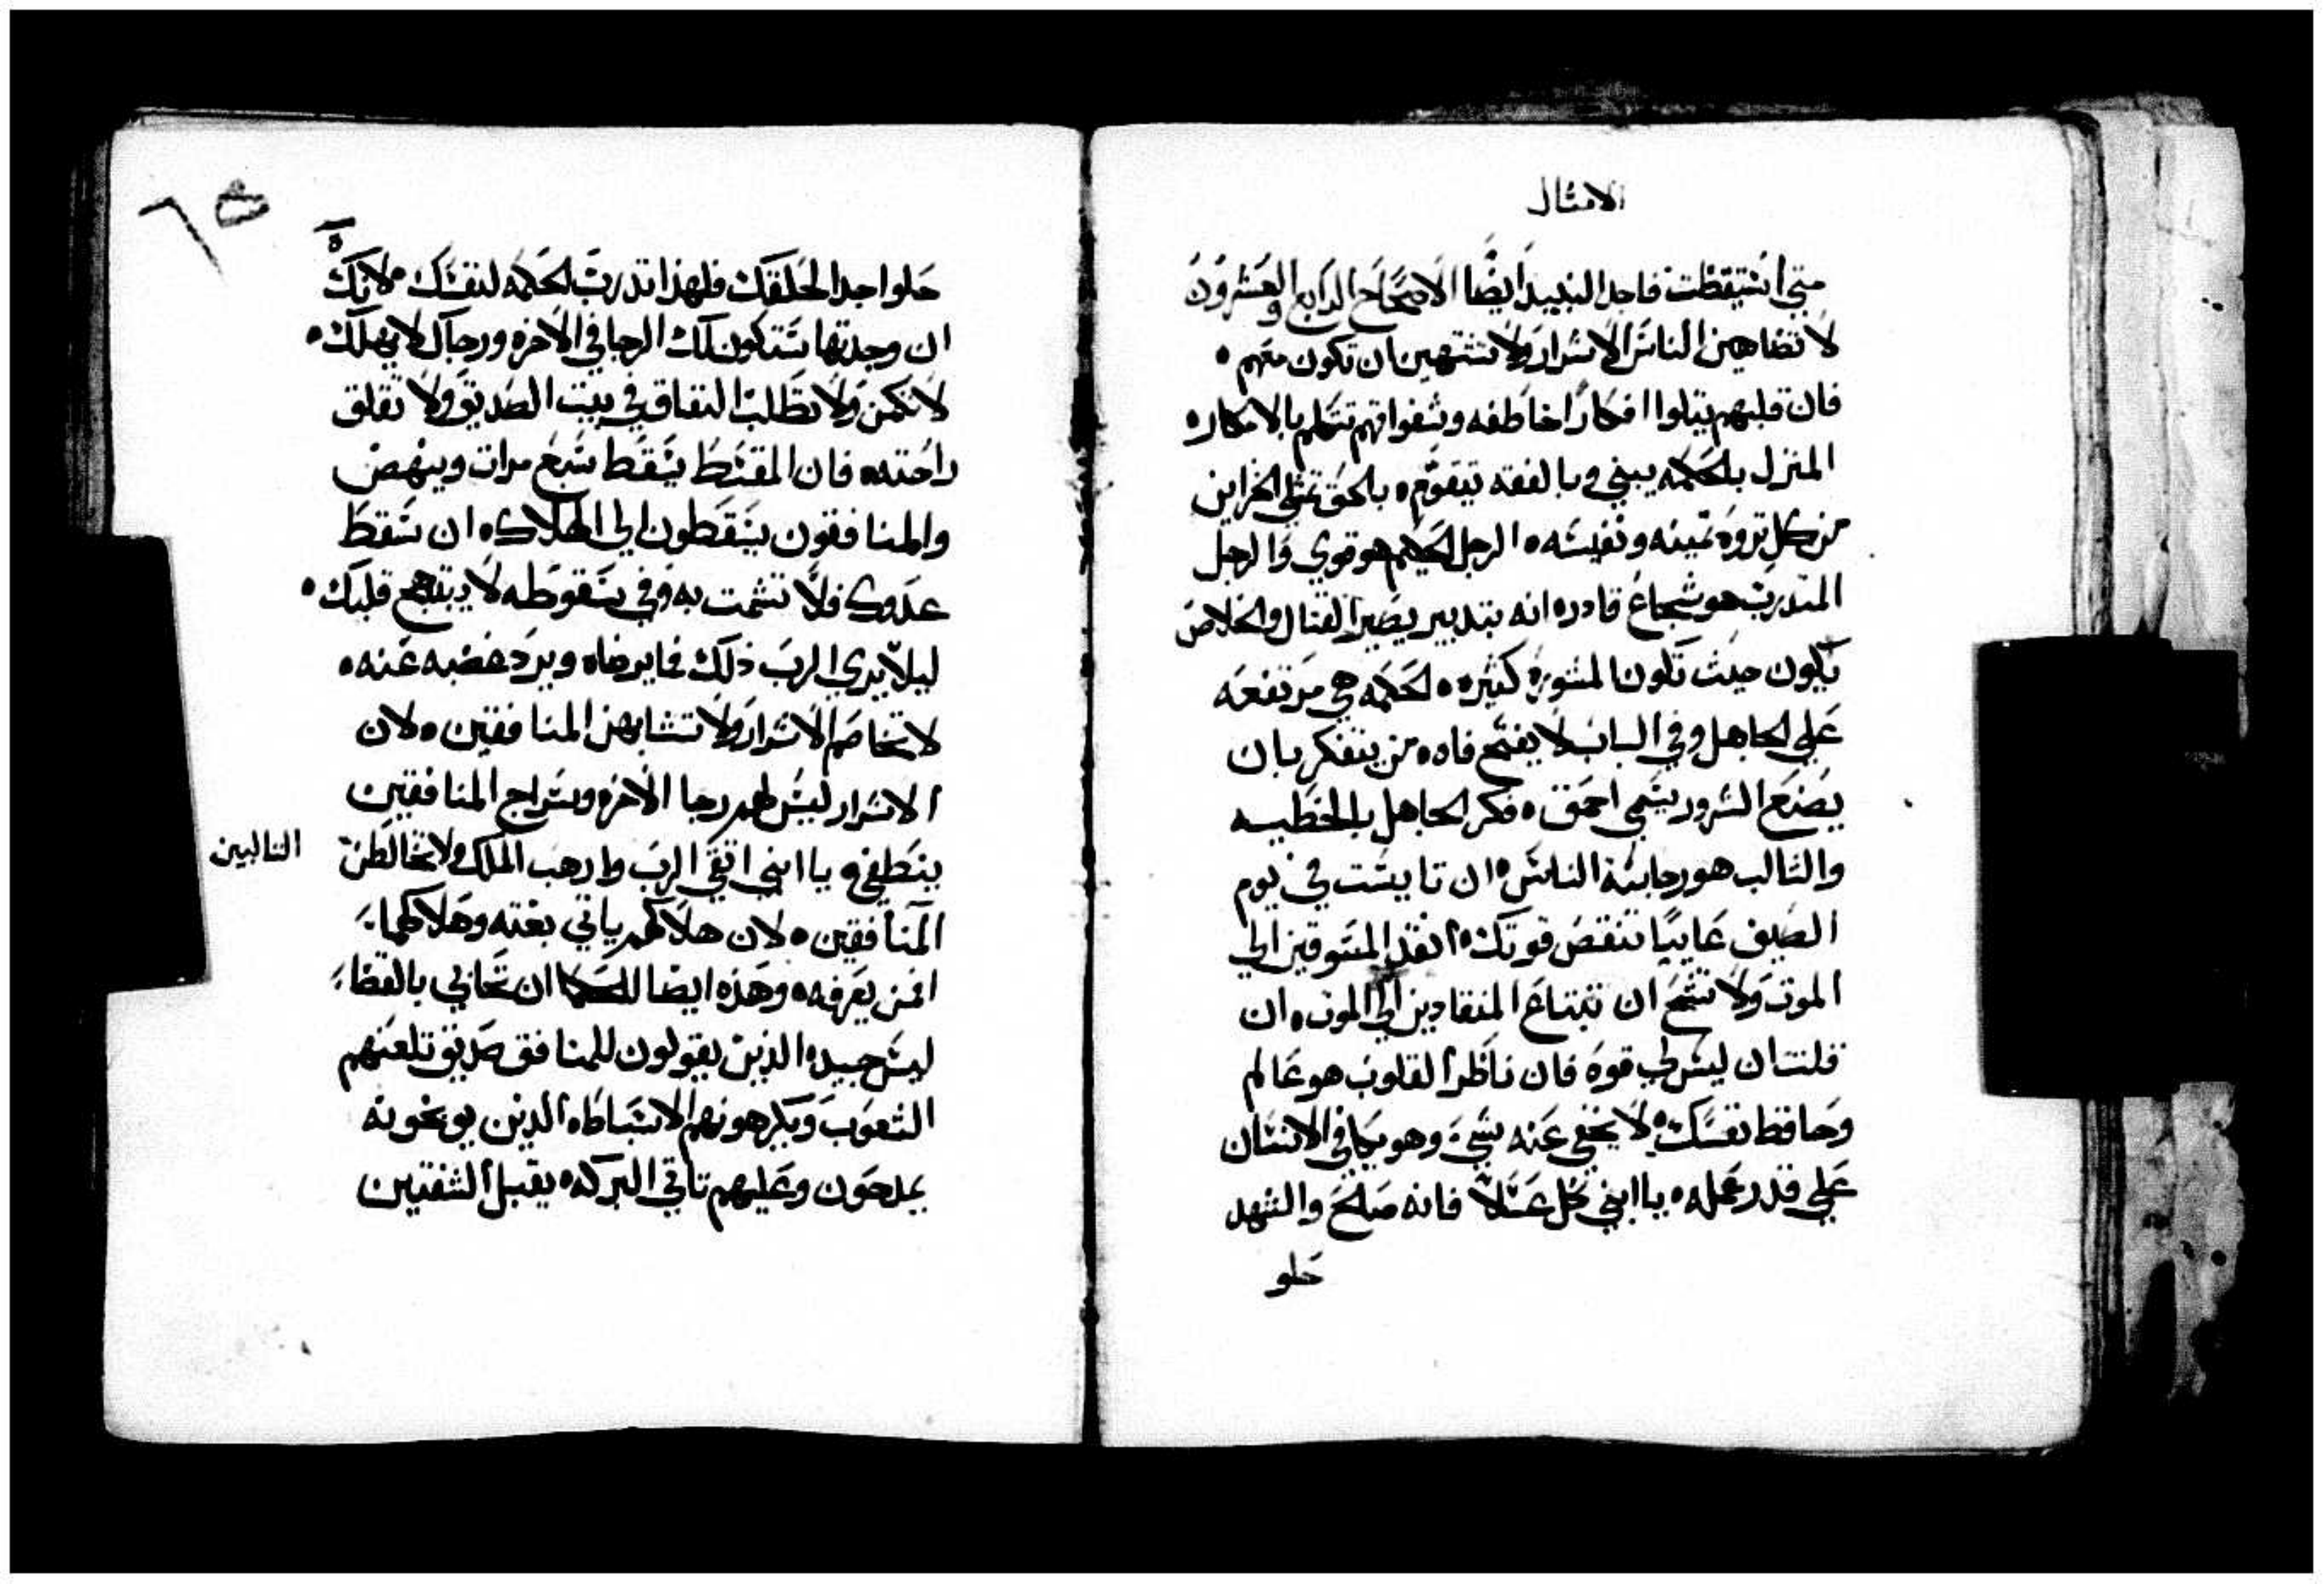 الامثال
متي استيقظت فاجد النبيد ايضا الاصحاح الرابع والعشرون
لا تضاهين الناس الاشرار ولا تشتهين ان تكون منهم ه
فان قلبهم يتلوا افكارا خاطفه وشفواتهم تتكلم بالامكاره
المنزل بالحكمه يبني وبالفقه تيقوم ه بالحق تمتلي الخزاين
من كل تروه تمينه ونفيسه ه الرجل الحكيم هو قوي والرجل
المتدرب هو شجاع قادره انه بتدبير يصير القتال والخلاص
يكون حيث تكون المشوره كثيره ه الحكمه هي مرتفعه
علي الجاهل وفي الباب لا يفتح فاه ه من يتفكر بان
يصنع الشرور يسمي احمق ه فكر الجاهل بالخطيه
والتالب هو رجاسة الناس ه ان تايست في يوم
الضيق عاييا تنقص قوتك ه انقد المسوقين الي
الموت ولا تشح ان تبتاع المنقادين الي الموت ه ان
قلت ان ليس لي قوه فان ناظر القلوب هو عالم
وحافظ نفسك ه لا يخفي عنه شي وهو يجافي الانسان
علي قدر عمله ه يا ابني كل عسلا فانه صالح والشهد
حلو
حلوا جدا لحلقك فلهذا تدرب الحكمه لنفسك ه لانك
ان وجدتها ستكون لك الرجا في الاخره ورجاك لا يهلك ه
لا تكمن ولا تطلب النفاق في بيت الصديق ولا تقلق
راحته ه فان المقسط يسقط سبع مرات وينهض
والمنافقون يسقطون الي الهلاك ه ان سقط
عدوك فلا تشمت به وفي سقوطه لا يبتهج قلبك ه
ليلا يري الرب ذلك فما يرضاه ويرد غضبه عنه ه
لا تخاصم الاشرار ولا تشابهن المنافقين ه لان
الاشرار ليس لهم رجا الاخره وسراج المنافقين
ينطفي ه يا ابني اتقي الرب وارهب الملك ولا تخالطن
التالبين
المنافقين ه لان هلاكهم ياتي بغته وهلاكهما
افمن يعرفه ه وهذه ايضا للحكما ان تحابي بالقضا
ليس جيده الذين يقولون للمنافق صديق تلعنهم
الشعوب ويكرهونهم الاسباط ه الذين يوبخونه
يمدحون وعليهم تاتي البركه ه يقبل الشفتين